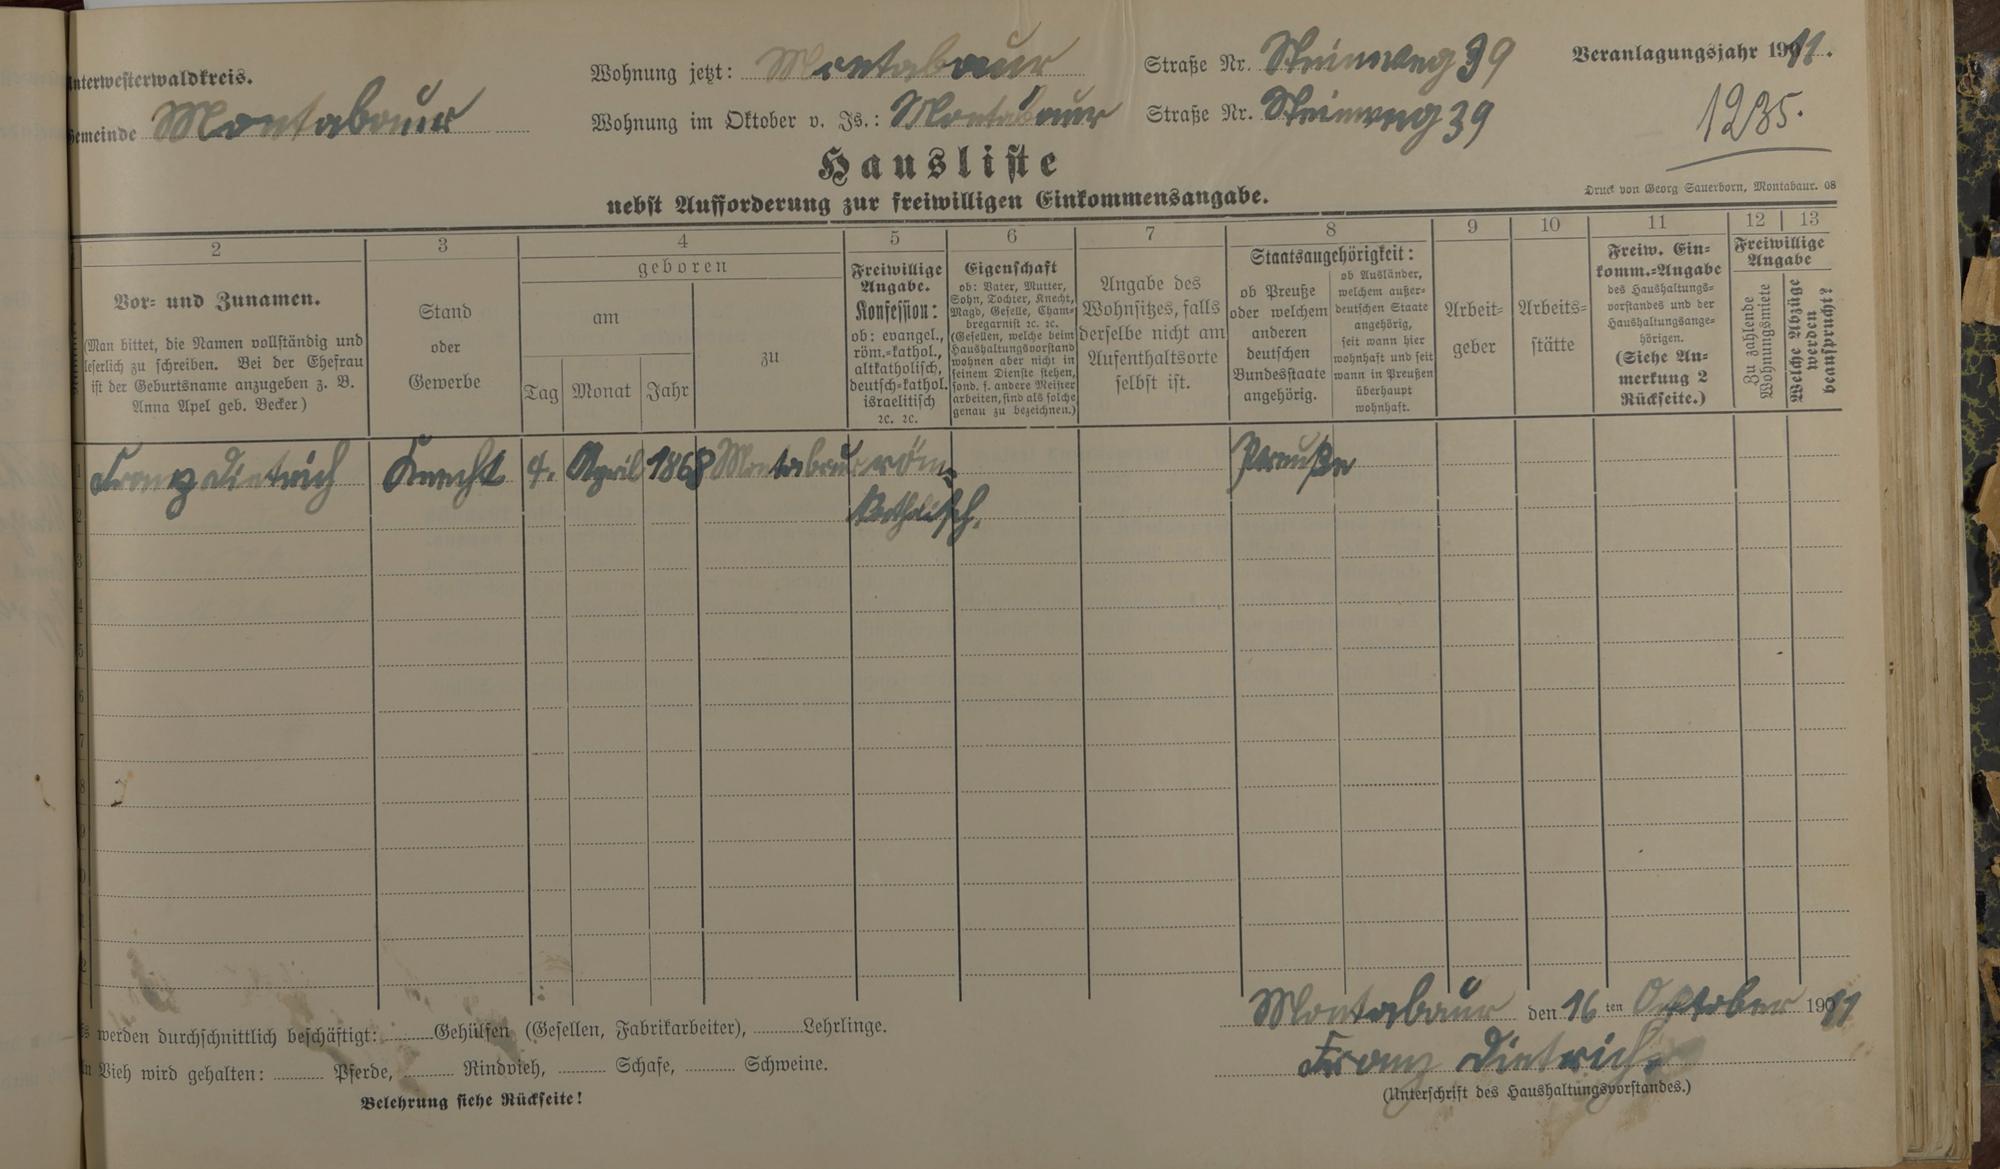 Unterwesterwaldkreis.
Gemeinde Montabaur
Wohnung jetzt: Montabaur Straße Nr. Steinweg 39
Wohnung im Oktober v. Js.: Montabaur Straße Nr. Steinweg 39
Veranlagungsjahr 1911.
1235.
Hausliste
nebst Aufforderung zur freiwilligen Einkommensangabe.
Druck von Georg Sauerborn, Montabaur. 08
2 3 4 5 6 7 8 9 10 11 12 13
Vor- und Zunamen.
(Man bittet, die Namen vollständig und
leserlich zu schreiben. Bei der Ehefrau
ist der Geburtsname anzugeben z. B.
Anna Apel geb. Becker)
Stand
oder
Gewerbe
geboren
am
Tag Monat Jahr
zu
Freiwillige
Angabe.
Konfession:
ob: evangel.,
röm.=kathol.,
altkatholisch,
deutsch=kathol.
israelitisch
ꝛc. ꝛc.
Eigenschaft
ob: Vater, Mutter,
Sohn, Tochter, Knecht,
Magd, Geselle, Cham-
bregarnist ꝛc. ꝛc.
(Gesellen, welche beim
Haushaltungsvorstand
wohnen aber nicht in
seinem Dienste stehen,
sond. f. andere Meister
arbeiten, sind als solche
genau zu bezeichnen.)
Angabe des
Wohnsitzes, falls
derselbe nicht am
Aufenthaltsorte
selbst ist.
Staatsangehörigkeit:
ob Preuße
oder welchem
anderen
deutschen
Bundesstaate
angehörig.
ob Ausländer,
welchem außer-
deutschen Staate
angehörig,
seit wann hier
wohnhaft und seit
wann in Preußen
überhaupt
wohnhaft.
Arbeit-
geber
Arbeits-
stätte
Freiw. Ein-
komm.=Angabe
des Haushaltungs-
vorstandes und der
Haushaltungsange-
hörigen.
(Siehe An-
merkung 2
Rückseite.)
Freiwillige
Angabe
Zu zahlende
Wohnungsmiete
Welche Abzüge
werden
beansprucht?
1 Franz Dietrich Knecht 4. April 1868 Montabaur röm= Preuße
2 katholisch.
3
4
5
6
7
8
9
0
1
2
Es werden durchschnittlich beschäftigt: Gehülfen (Gesellen, Fabrikarbeiter), Lehrlinge.
An Vieh wird gehalten: Pferde, Rindvieh, Schafe, Schweine.
Belehrung siehe Rückseite!
Montabaur den 16 ten Oktober 1911
Franz Dietrich
(Unterschrift des Haushaltungsvorstandes.)